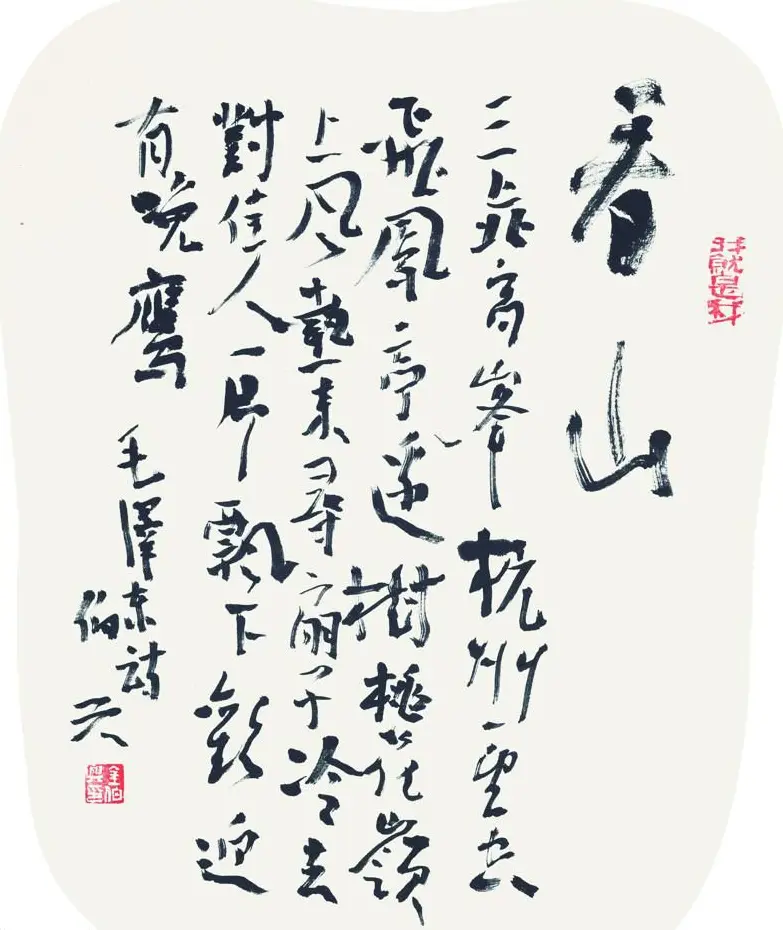 看山
我就是我
三上北高峯杭州一望空
飛鳳亭邊樹桃花嶺
上風熱來尋扇子冷去
對佳人一片飄下歡迎
有晚鷹
毛澤东詩
伯兴